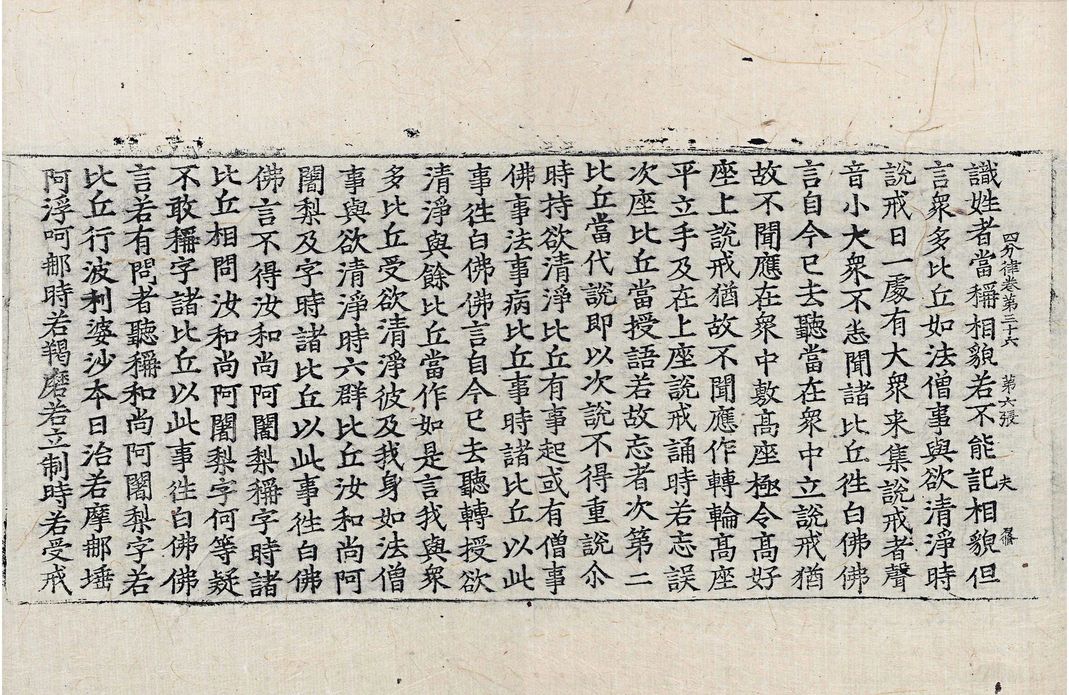 四分律卷第三十六 第六張 夫
識姓者當稱相貌若不能記相貌但
言衆多比丘如法僧事與欲清淨時
說戒日一處有大衆来集說戒者聲
音小大衆不悉聞諸比丘徃白佛佛
言自今已去聽當在衆中立說戒猶
故不聞應在衆中敷髙座極令髙好
座上說戒猶故不聞應作轉輪髙座
平立手及在上座說戒誦時若忘誤
次座比丘當授語若故忘者次第二
比丘當代說即以次說不得重說尒
時持欲清淨比丘有事起或有僧事
佛事法事病比丘事時諸比丘以此
事徃白佛佛言自今已去聽轉授欲
清淨與餘比丘當作如是言我與衆
多比丘受欲清淨彼及我身如法僧
事與欲清淨時六群比丘汝和尚阿
闍梨及字時諸比丘以此事徃白佛
佛言不得汝和尚阿闍梨稱字時諸
比丘相問汝和尚阿闍梨字何等疑
不敢稱字諸比丘以此事徃白佛佛
言若有問者聽稱和尚阿闍梨字若
比丘行波利婆沙本日治若摩那埵
阿浮呵那時若羯磨若立制時若受戒